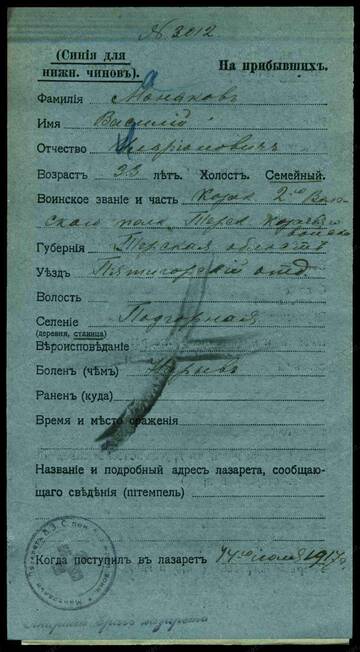 № 3012
(Синія для
нижн. чиновъ).
На прибывшихъ.
Фамилія Манаковъ
Имя Василій
Отчество
Возрастъ 33 лѣтъ. Холостъ. Семейный.
Воинское званіе и часть Козак 2го Волг
скаго полк Терск Козачьяго
войска
Губернія Терская область
Уѣздъ Пятигорскій отд
Волость
Селеніе Подгорная
(деревня, станица)
Вѣроисповѣданіе
Боленъ (чѣмъ) Нарывъ
Раненъ (куда)
Время и мѣсто сраженія
Названіе и подробный адресъ лазарета, сообщаю-
щаго свѣдѣнія (штемпель)
Когда поступилъ въ лазаретъ 14го іюля 1917 г.
Старшій врачъ лазарета